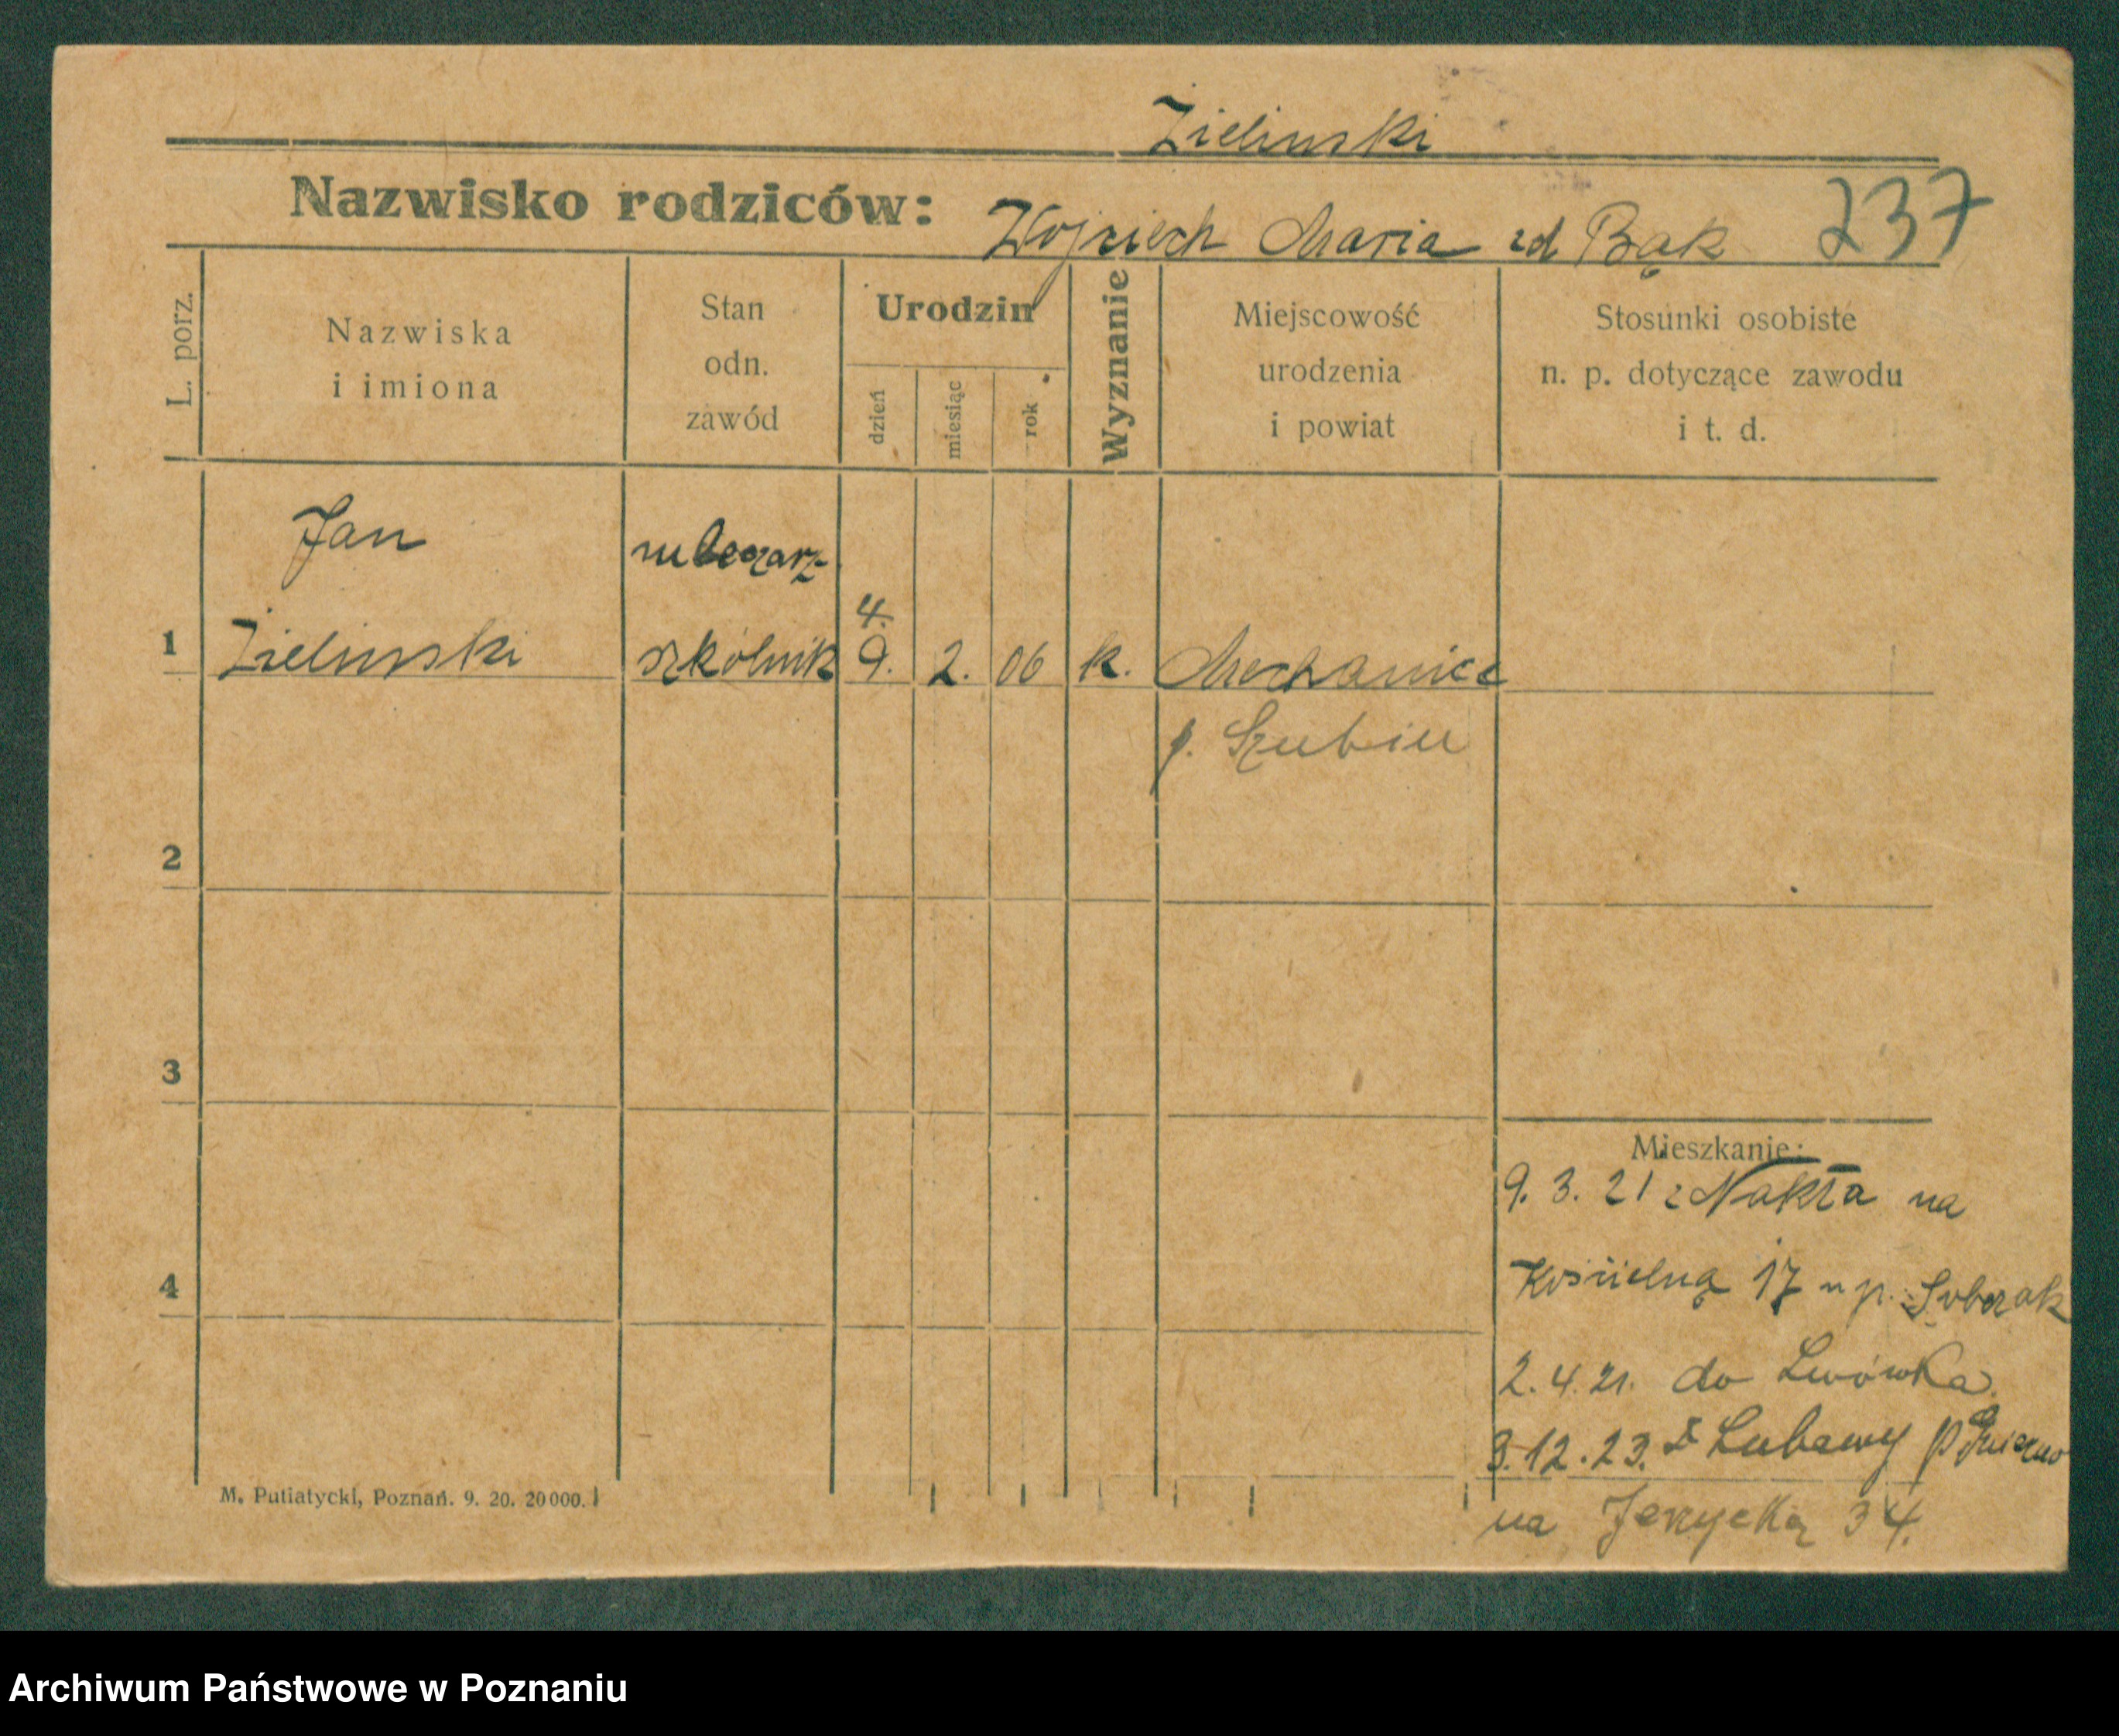 Zielinski
Nazwisko rodziców: Wojciech Maria zd Bąk 237
L. porz.
Nazwiska
i imiona
Stan
odn.
zawód
Urodzin
dzień
miesiąc
rok
Wyznanie
Miejscowość
urodzenia
i powiat
Stosunki osobiste
n. p. dotyczące zawodu
i t. d.
Jan
mleczarz
4.
1 Zielinski szkolnik 9. 2. 06 k.
p. Szubin
2
3
Mieszkanie:
9. 3. 21 z Nakła na
4
Kościelną 17 u p. Sobczak
2. 4. 21. do Lwówka
3. 12. 23. z Lubawy p Gniezno
na Jerzycką 34.
M. Putiatycki, Poznań. 9. 20. 20000.
Archiwum Państwowe w Poznaniu